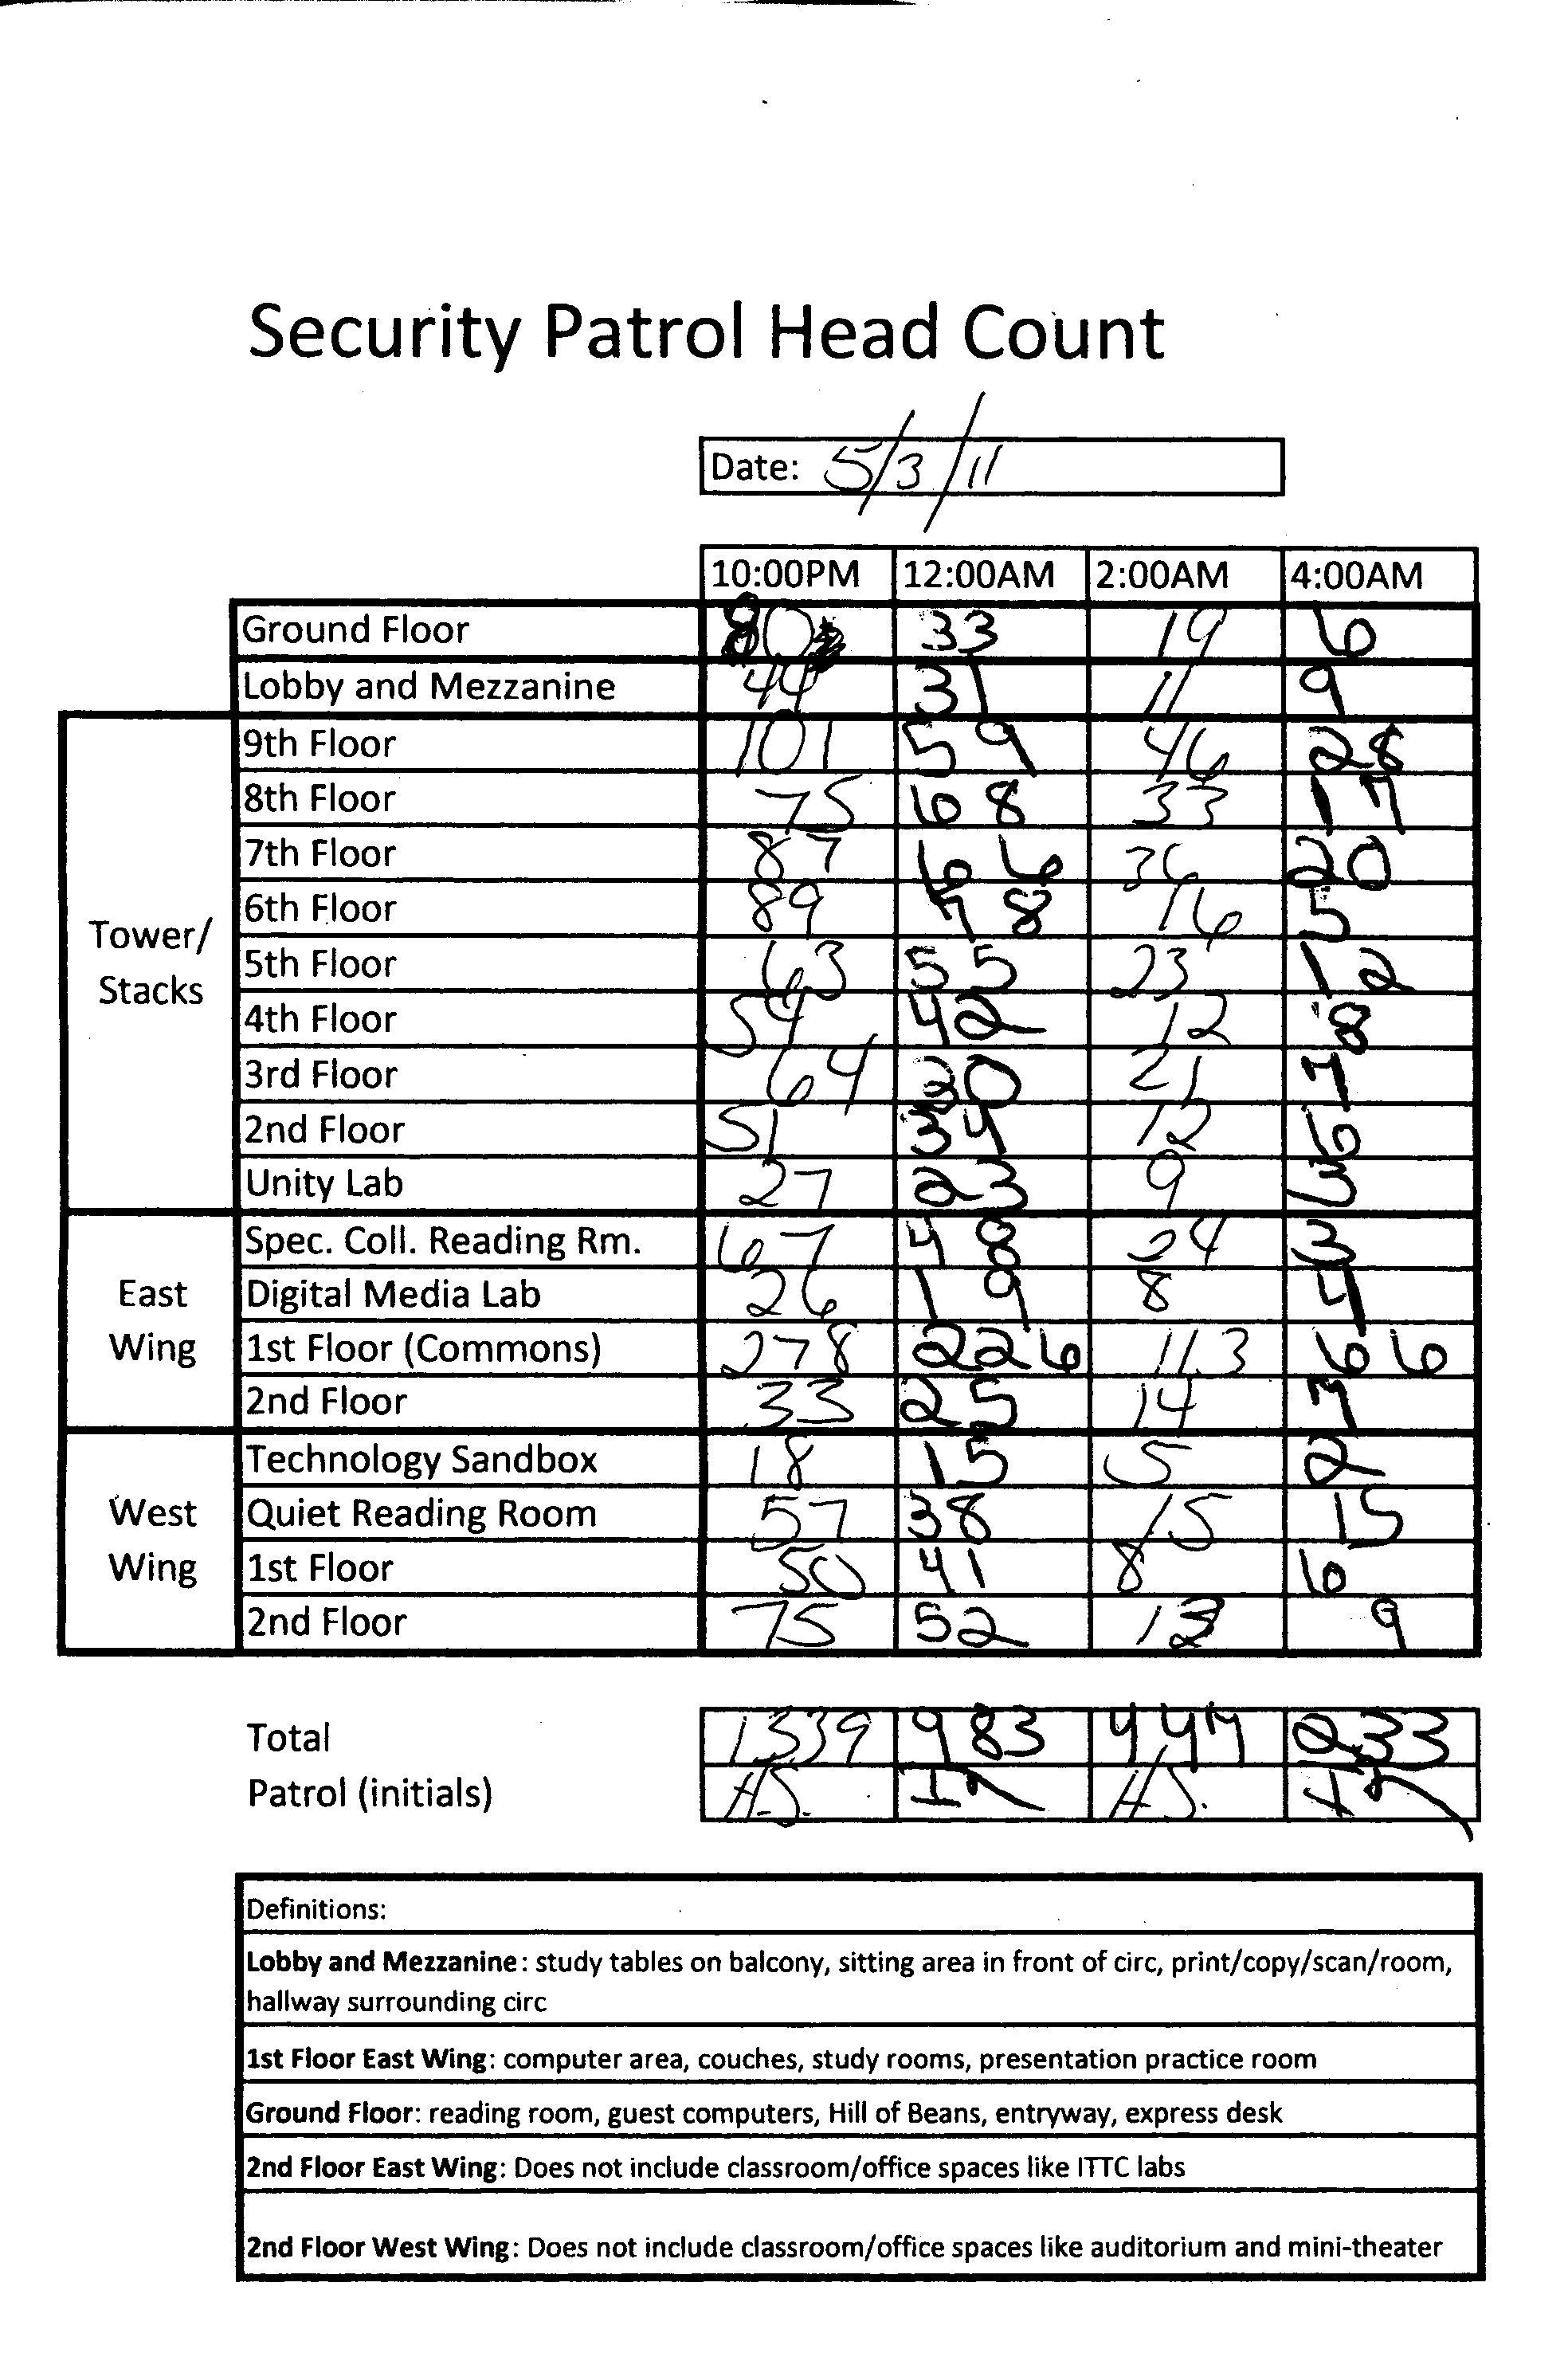 Security Patrol Head Count
Date: 5/3/11
10:00PM 12:00AM 2:00AM 4:00AM
Ground Floor 80 33 19 6
Lobby and Mezzanine 44 31 11 9
Tower/
Stacks
9th Floor 101 59 46 28
8th Floor 75 68 33 17
7th Floor 87 66 36 20
6th Floor 89 78 16 5
5th Floor 63 55 23 12
4th Floor 54 42 12 8
3rd Floor 64 30 21 7
2nd Floor 51 34 12 6
Unity Lab 27 23 9 3
East
Wing
Spec. Coll. Reading Rm. 67 48 24 3
Digital Media Lab 26 19 8 4
1st Floor (Commons) 278 226 113 66
2nd Floor 33 25 14 7
West
Wing
Technology Sandbox 18 15 5 2
Quiet Reading Room 57 38 15 15
1st Floor 50 41 8 6
2nd Floor 75 52 13 9
Total 1339 983 447 233
Patrol (initials) H.S. H.S.
Definitions:
Lobby and Mezzanine: study tables on balcony, sitting area in front of circ, print/copy/scan/room,
hallway surrounding circ
1st Floor East Wing: computer area, couches, study rooms, presentation practice room
Ground Floor: reading room, guest computers, Hill of Beans, entryway, express desk
2nd Floor East Wing: Does not include classroom/office spaces like ITTC labs
2nd Floor West Wing: Does not include classroom/office spaces like auditorium and mini-theater